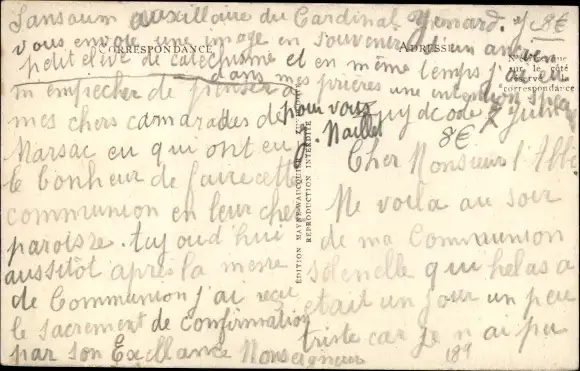 Sansaum auxillaire du Cardinal Yenard. Je
vous envoie une image en souvenir d'un ancien
petit élève de catéchisme et en même temps j'aurai
dans mes prières une intention speciale
pour vous
J. Naillet
8€
CORRESPONDANCE
ADRESSE
N'écrire que
sur le côté
réservé à la
correspondance
Puy de dome 2 Juin
8€
Cher Monsieur l'Abbé
Me voila au soir
de ma Communion
solenelle qui helas a
etait un jour un peu
triste car je n ai pu
m empecher de penser a
mes chers camarades de
Marsac eu qui ont eu
le bonheur de faire cette
communion en leur chere
paroisse. Aujoud'hui
aussitôt après la messe
de Communion j'ai reçu
le sacrement de confirmation
par son Exellance Monseigneur
ÉDITION MAYNE-VAUCQUIER
REPRODUCTION INTERDITE
189